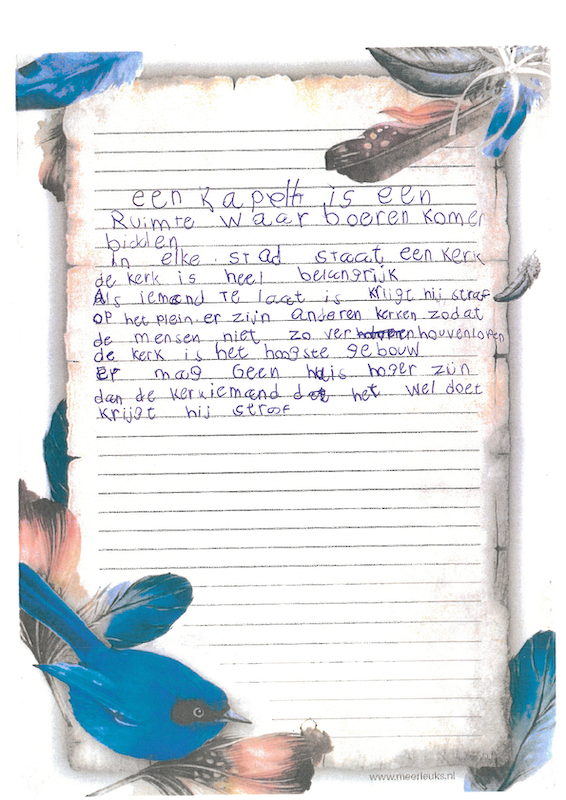 een kapelh is een
Ruimte waar boeren komen
bidden
in elke stad staat een kerk
de kerk is heel belangrijk
Als iemand te laat is krijgt hij straf
op het plein er zijn anderen kerken zodat
de mensen niet zo ver houvenlopen
de kerk is het hoogste gebouw
Er mag Geen huis hoger zijn
dan de kerkiemand dat het wel doet
krijgt hij straf
www.meerleuks.nl